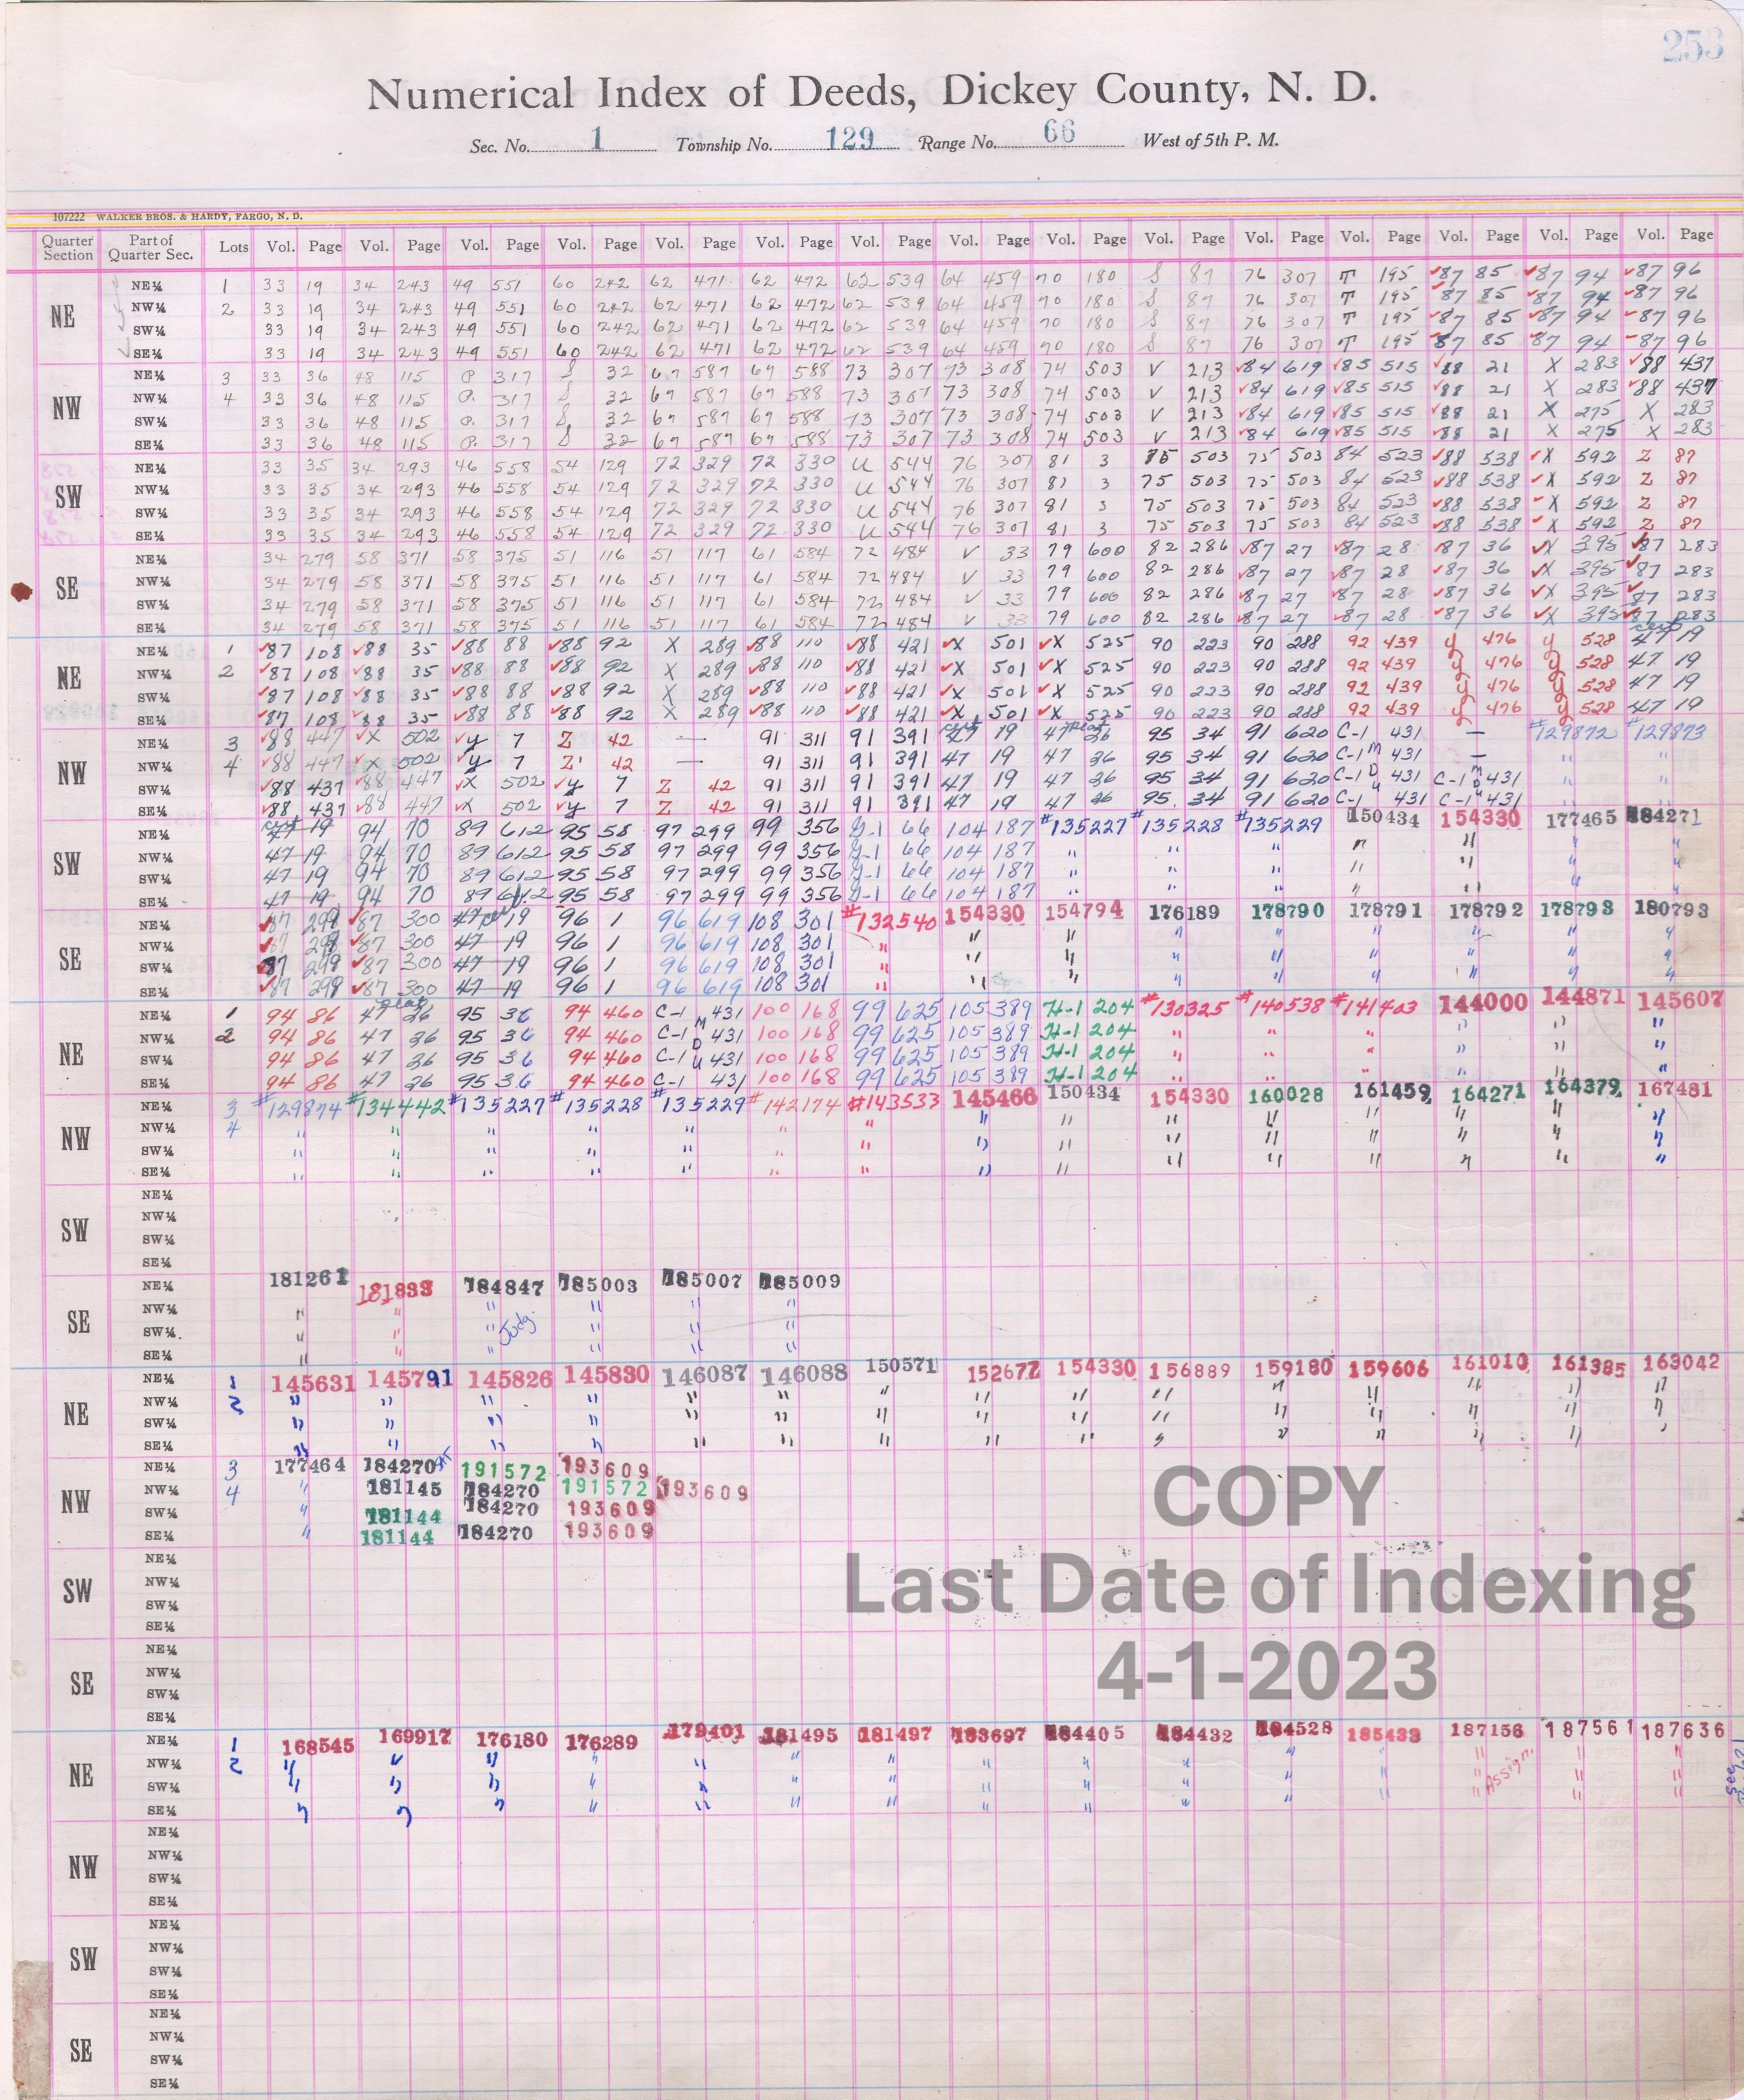 253
Numerical Index of Deeds, Dickey County, N. D.
Sec. No. 1 Township No. 129 Range No. 66 West of 5th P. M.
107222 WALKER BROS. & HARDY, FARGO, N. D.
Quarter Section Part of Quarter Sec. Lots Vol. Page Vol. Page Vol. Page Vol. Page Vol. Page Vol. Page Vol. Page Vol. Page Vol. Page Vol. Page Vol. Page Vol. Page Vol. Page Vol. Page Vol. Page
NE
NE¼ 1 33 19 34 243 49 551 60 242 62 471 62 472 62 539 64 459 70 180 S 87 76 307 T 195 ✓87 85 ✓87 94 ✓87 96
NW¼ 2 33 19 34 243 49 551 60 242 62 471 62 472 62 539 64 459 70 180 S 87 76 307 T 195 ✓87 85 ✓87 94 ✓87 96
SW¼ 33 19 34 243 49 551 60 242 62 471 62 472 62 539 64 459 70 180 S 87 76 307 T 195 ✓87 85 ✓87 94 ✓87 96
SE¼ 33 19 34 243 49 551 60 242 62 471 62 472 62 539 64 459 70 180 S 87 76 307 T 195 ✓87 85 ✓87 94 ✓87 96
NW
NE¼ 3 33 36 48 115 P 317 S 32 67 587 69 588 73 307 73 308 74 503 V 213 ✓84 619 ✓85 515 ✓88 21 X 283 ✓88 437
NW¼ 4 33 36 48 115 P. 317 S 32 67 587 69 588 73 307 73 308 74 503 V 213 ✓84 619 ✓85 515 ✓88 21 X 283 ✓88 437
SW¼ 33 36 48 115 P. 317 S 32 67 587 69 588 73 307 73 308 74 503 V 213 ✓84 619 ✓85 515 ✓88 21 X 275 X 283
SE¼ 33 36 48 115 P. 317 S 32 67 587 69 588 73 307 73 308 74 503 V 213 ✓84 619 ✓85 515 ✓88 21 X 275 X 283
SW
NE¼ 33 35 34 293 46 558 54 129 72 329 72 330 U 544 76 307 81 3 75 503 75 503 84 523 ✓88 538 ✓X 592 Z 87
NW¼ 33 35 34 293 46 558 54 129 72 329 72 330 U 544 76 307 81 3 75 503 75 503 84 523 ✓88 538 ✓X 592 Z 87
SW¼ 33 35 34 293 46 558 54 129 72 329 72 330 U 544 76 307 81 3 75 503 75 503 84 523 ✓88 538 ✓X 592 Z 87
SE¼ 33 35 34 293 46 558 54 129 72 329 72 330 U 544 76 307 81 3 75 503 75 503 84 523 ✓88 538 ✓X 592 Z 87
SE
NE¼ 34 279 58 371 58 375 51 116 51 117 61 584 72 484 V 33 79 600 82 286 ✓87 27 ✓87 28 ✓87 36 ✓X 395 ✓87 283
NW¼ 34 279 58 371 58 375 51 116 51 117 61 584 72 484 V 33 79 600 82 286 ✓87 27 ✓87 28 ✓87 36 ✓X 395 ✓87 283
SW¼ 34 279 58 371 58 375 51 116 51 117 61 584 72 484 V 33 79 600 82 286 ✓87 27 ✓87 28 ✓87 36 ✓X 395 ✓87 283
SE¼ 34 279 58 371 58 375 51 116 51 117 61 584 72 484 V 33 79 600 82 286 ✓87 27 ✓87 28 ✓87 36 ✓X 395 ✓87 283
NE
NE¼ 1 ✓87 108 ✓88 35 ✓88 88 ✓88 92 X 289 ✓88 110 ✓88 421 ✓X 501 ✓X 525 90 223 90 288 92 439 y 476 y 528 47 19
NW¼ 2 ✓87 108 ✓88 35 ✓88 88 ✓88 92 X 289 ✓88 110 ✓88 421 ✓X 501 ✓X 525 90 223 90 288 92 439 y 476 y 528 47 19
SW¼ ✓87 108 ✓88 35 ✓88 88 ✓88 92 X 289 ✓88 110 ✓88 421 ✓X 501 ✓X 525 90 223 90 288 92 439 y 476 y 528 47 19
SE¼ ✓87 108 ✓88 35 ✓88 88 ✓88 92 X 289 ✓88 110 ✓88 421 ✓X 501 ✓X 525 90 223 90 288 92 439 y 476 y 528 47 19
NW
NE¼ 3 ✓88 447 ✓X 502 ✓y 7 Z 42 — 91 311 91 391 47 19 47 plat 26 95 34 91 620 C-1 431 — #129872 #129873
NW¼ 4 ✓88 447 ✓X 502 ✓y 7 Z 42 — 91 311 91 391 47 19 47 26 95 34 91 620 C-1 M 431 — " "
SW¼ ✓88 437 ✓88 447 ✓X 502 ✓y 7 Z 42 91 311 91 391 47 19 47 26 95 34 91 620 C-1 D 431 C-1 M D 431 " "
SE¼ ✓88 437 ✓88 447 ✓X 502 ✓y 7 Z 42 91 311 91 391 47 19 47 26 95 34 91 620 C-1 431 C-1 431 " "
SW
NE¼ 47 19 94 70 89 612 95 58 97 299 99 356 G-1 66 104 187 #135227 #135228 #135229 150434 154330 177465 184271
NW¼ 47 19 94 70 89 612 95 58 97 299 99 356 G-1 66 104 187 " " " " " " "
SW¼ 47 19 94 70 89 612 95 58 97 299 99 356 G-1 66 104 187 " " " " " " "
SE¼ 47 19 94 70 89 612 95 58 97 299 99 356 G-1 66 104 187 " " " " " " "
SE
NE¼ ✓87 299 ✓87 300 47 19 96 1 96 619 108 301 #132540 154330 154794 176189 178790 178791 178792 178793 180793
NW¼ ✓87 299 ✓87 300 47 19 96 1 96 619 108 301 " " " " " " " " "
SW¼ ✓87 299 ✓87 300 47 19 96 1 96 619 108 301 " " " " " " " " "
SE¼ ✓87 299 ✓87 300 47 19 96 1 96 619 108 301 " " " " " " " " "
NE
NE¼ 1 94 86 47 plat 26 95 36 94 460 C-1 431 100 168 99 625 105 389 H-1 204 #130325 #140538 #141403 144000 144871 145607
NW¼ 2 94 86 47 26 95 36 94 460 C-1 M 431 100 168 99 625 105 389 H-1 204 " " " " " "
SW¼ 94 86 47 26 95 36 94 460 C-1 D 431 100 168 99 625 105 389 H-1 204 " " " " " "
SE¼ 94 86 47 26 95 36 94 460 C-1 431 100 168 99 625 105 389 H-1 204 " " " " " "
NW
NE¼ 3 #129874 #134442 #135227 #135228 #135229 #142174 #143533 145466 150434 154330 160028 161459 164271 164379 167481
NW¼ 4 " " " " " " " " " " " " " " "
SW¼ " " " " " " " " " " " " " " "
SE¼ " " " " " " " " " " " " " " "
SW
NE¼
NW¼
SW¼
SE¼
SE
NE¼ 181261 181833 184847 185003 185007 185009
NW¼ " " " " " "
SW¼ " " " Judg. " " "
SE¼ " " " " " "
NE
NE¼ 1 145631 145791 145826 145830 146087 146088 150571 152677 154330 156889 159180 159606 161010 161385 163042
NW¼ 2 " " " " " " " " " " " " " " "
SW¼ " " " " " " " " " " " " " " "
SE¼ " " " " " " " " " " " " " " "
NW
NE¼ 3 177464 184270 191572 193609
NW¼ 4 " 181145 184270 191572 193609
SW¼ " 181144 184270 193609
SE¼ " 181144 184270 193609
COPY
SW
NE¼
NW¼
SW¼
SE¼
Last Date of Indexing
SE
NE¼
NW¼
SW¼
SE¼
4-1-2023
NE
NE¼ 1 168545 169917 176180 176289 179401 181495 181497 183697 184405 184432 184528 185433 187156 187561 187636
NW¼ 2 " " " " " " " " " " " " " " "
SW¼ " " " " " " " " " " " " " Assign. " "
SE¼ " " " " " " " " " " " " " " "
See
NW
NE¼
NW¼
SW¼
SE¼
SW
NE¼
NW¼
SW¼
SE¼
SE
NE¼
NW¼
SW¼
SE¼